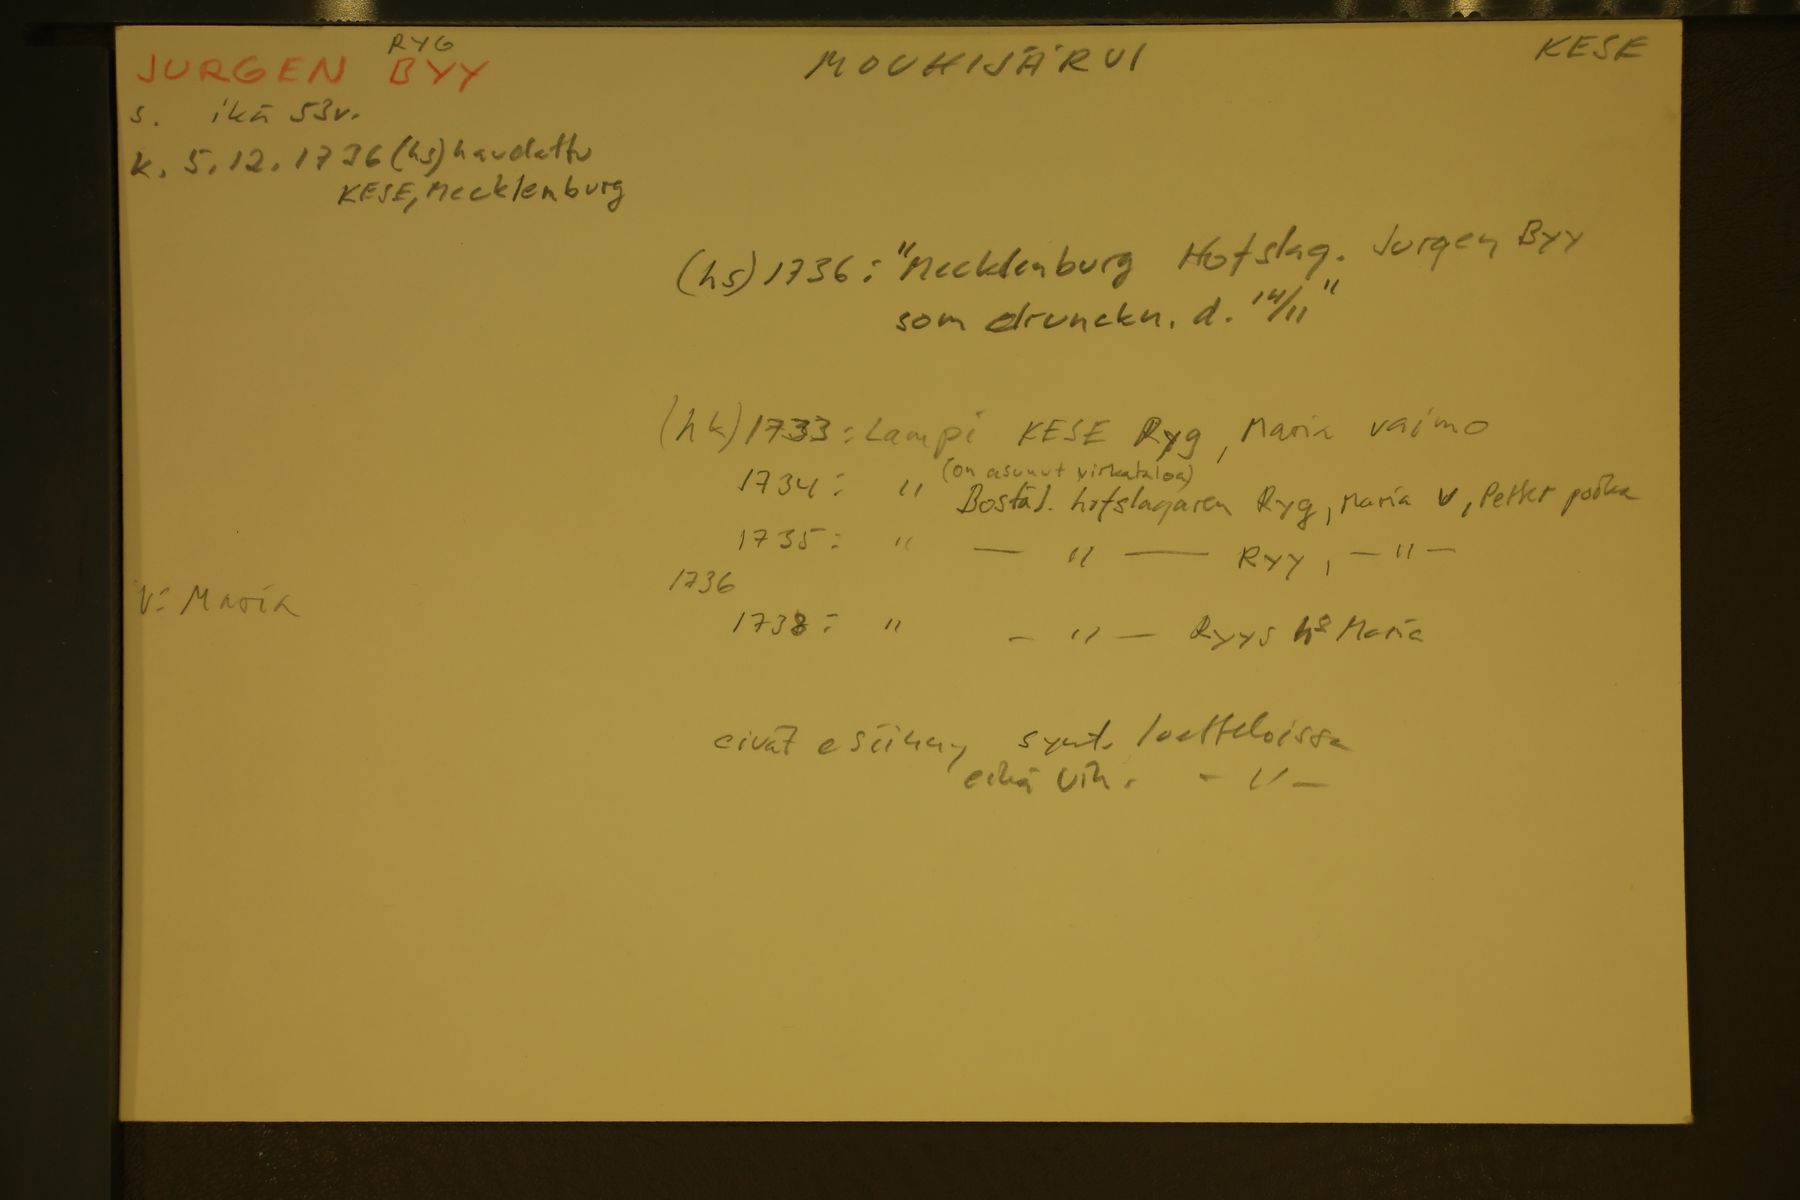 RYG
JURGEN BYY
MOUHIJÄRVI
KESE
s. ikä 53v.
k. 5.12.1736 (hs) haudattu
KESE, Mecklenburg
(hs) 1736: "Mecklenburg Hofslag. Jurgen Byy
som drunckn. d. 14/11"
(hk) 1733: Lampi KESE Ryg, Maria vaimo
(on asunut virkataloa)
1734: " Bostäl. hofslagaren Ryg, Maria v, Petter poika
1735: " — " — Ryy, — " —
1736
1738: " — " — Ryys hs Maria
V: Maria
eivät esiinny synt. luetteloissa
eikä vih. — " —